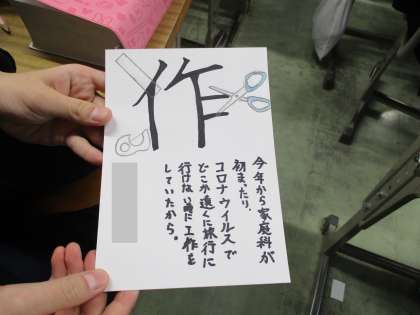 作
今年から家庭科が
初まったり、
コロナウイルスで
どこか遠くに旅行に
行けない時に工作を
していたから。